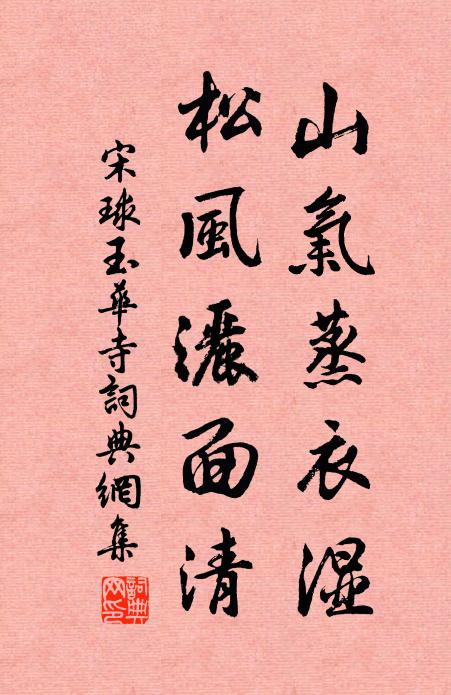 山氣蒸衣濕
松風灑面清
宋球玉華寺詞典網集
詞典網印